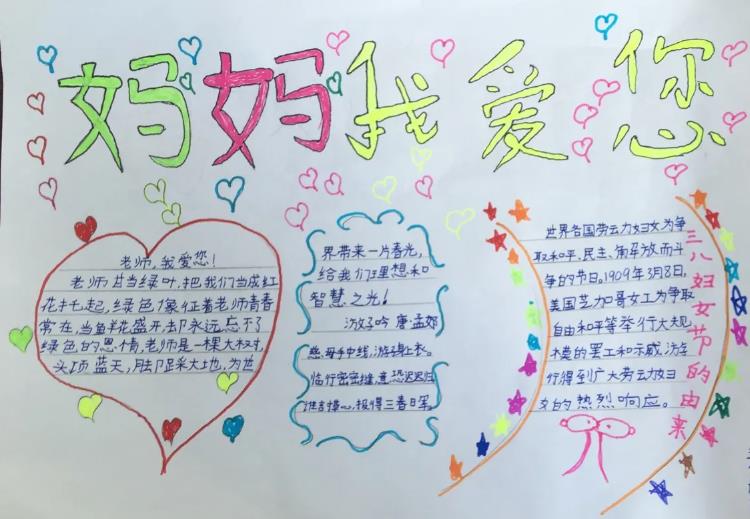 妈妈我爱您
老师,我爱您!
老师甘当绿叶,把我们当成红
花托起,绿色像征着老师青春
常在,当鲜花盛开却永远忘不了
绿色的恩情,老师是一棵大树,
头顶蓝天,脚踩大地,为世
界带来一片春光,
给我们理想和
智慧之光!
游子吟 唐.孟郊
慈母手中线,游子身上衣。
临行密密缝,意恐迟迟归
谁言寸心,报得三春日军。
世界各国劳动妇女为争
取和平、民主、解放而斗
争的节日。1909年3月8日,
美国芝加哥女工为争取
自由和平等举行大规
模的罢工和示威游
行得到广大劳动妇
女的热烈响应。
三八妇女节的由来